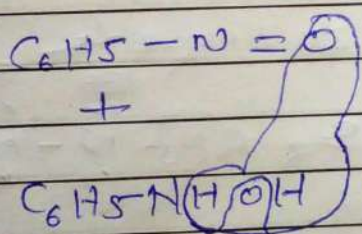 C6H5-N=O
+
C6H5-NHOH